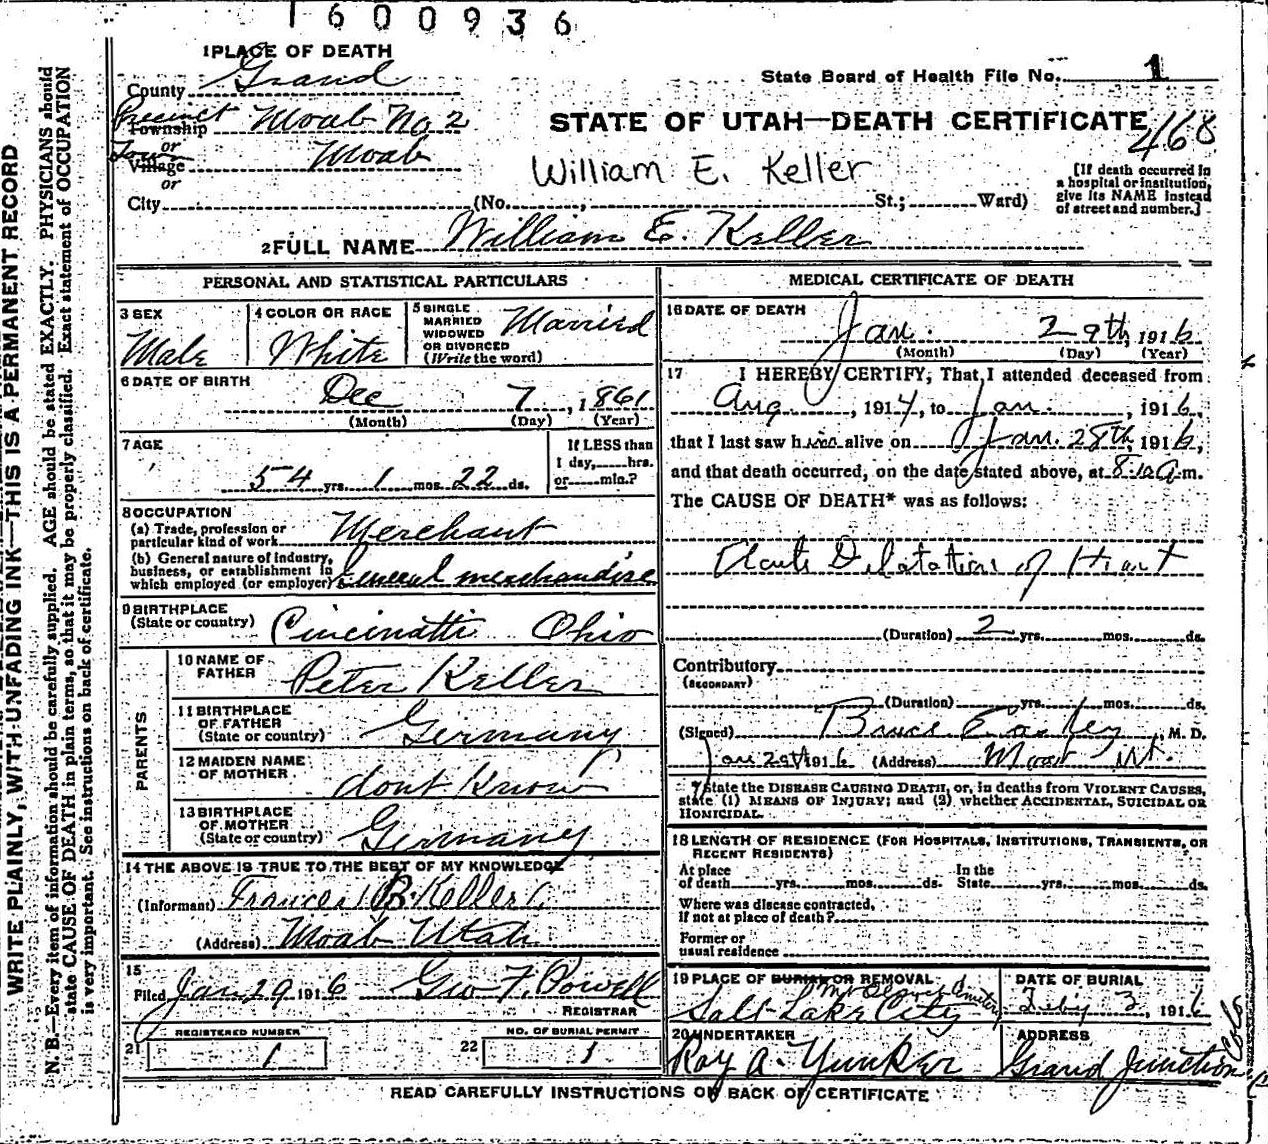 1600936
1 PLACE OF DEATH
County Grand
State Board of Health File No. 1
Precinct Township Moab No. 2
or
STATE OF UTAH—DEATH CERTIFICATE
468
Town Village Moab
or
William E. Keller
[If death occurred in a hospital or institution, give its NAME instead of street and number.]
City (No. , St.; Ward)
2 FULL NAME William E. Keller
PERSONAL AND STATISTICAL PARTICULARS
3 SEX Male
4 COLOR OR RACE White
5 SINGLE MARRIED WIDOWED OR DIVORCED (Write the word) Married
6 DATE OF BIRTH Dec 7, 1861
(Month) (Day) (Year)
7 AGE
54 yrs. 1 mos. 22 ds.
If LESS than 1 day, hrs. or min.?
8 OCCUPATION
(a) Trade, profession or particular kind of work Merchant
(b) General nature of industry, business, or establishment in which employed (or employer) General merchandise
9 BIRTHPLACE (State or country) Cincinatti Ohio
PARENTS
10 NAME OF FATHER Peter Keller
11 BIRTHPLACE OF FATHER (State or country) Germany
12 MAIDEN NAME OF MOTHER dont Know
13 BIRTHPLACE OF MOTHER (State or country) Germany
14 THE ABOVE IS TRUE TO THE BEST OF MY KNOWLEDGE
(Informant) Frances B. Keller
(Address) Moab Utah
15
Filed Jan 29 1916 Geo F. Powell
REGISTRAR
REGISTERED NUMBER
21 1
NO. OF BURIAL PERMIT
22 1
MEDICAL CERTIFICATE OF DEATH
16 DATE OF DEATH
Jan. 29th, 1916
(Month) (Day) (Year)
17 I HEREBY CERTIFY, That I attended deceased from
Aug., 1914, to Jan., 1916,
that I last saw him alive on Jan. 28th, 1916,
and that death occurred, on the date stated above, at 8:10 a.m.
The CAUSE OF DEATH* was as follows:
Acute Dilatation of Heart
(Duration) 2 yrs. mos. ds.
Contributory
(SECONDARY)
(Duration) yrs. mos. ds.
(Signed) Bruce , M. D.
Jan 29th 1916 (Address) Moab Ut.
*State the DISEASE CAUSING DEATH, or, in deaths from VIOLENT CAUSES, state (1) MEANS OF INJURY; and (2) whether ACCIDENTAL, SUICIDAL OR HOMICIDAL.
18 LENGTH OF RESIDENCE (FOR HOSPITALS, INSTITUTIONS, TRANSIENTS, OR RECENT RESIDENTS)
At place of death yrs. mos. ds. In the State yrs. mos. ds.
Where was disease contracted, if not at place of death?
Former or usual residence
19 PLACE OF BURIAL OR REMOVAL
Mt Olivet Cemetery
Salt Lake City
DATE OF BURIAL
Feby 3, 1916
20 UNDERTAKER
Roy A. Yunker
ADDRESS
Grand Junction Colo
READ CAREFULLY INSTRUCTIONS ON BACK OF CERTIFICATE
WRITE PLAINLY, WITH UNFADING INK—THIS IS A PERMANENT RECORD
N. B.—Every item of information should be carefully supplied. AGE should be stated EXACTLY. PHYSICIANS should
state CAUSE OF DEATH in plain terms, so that it may be properly classified. Exact statement of OCCUPATION
is very important. See instructions on back of certificate.